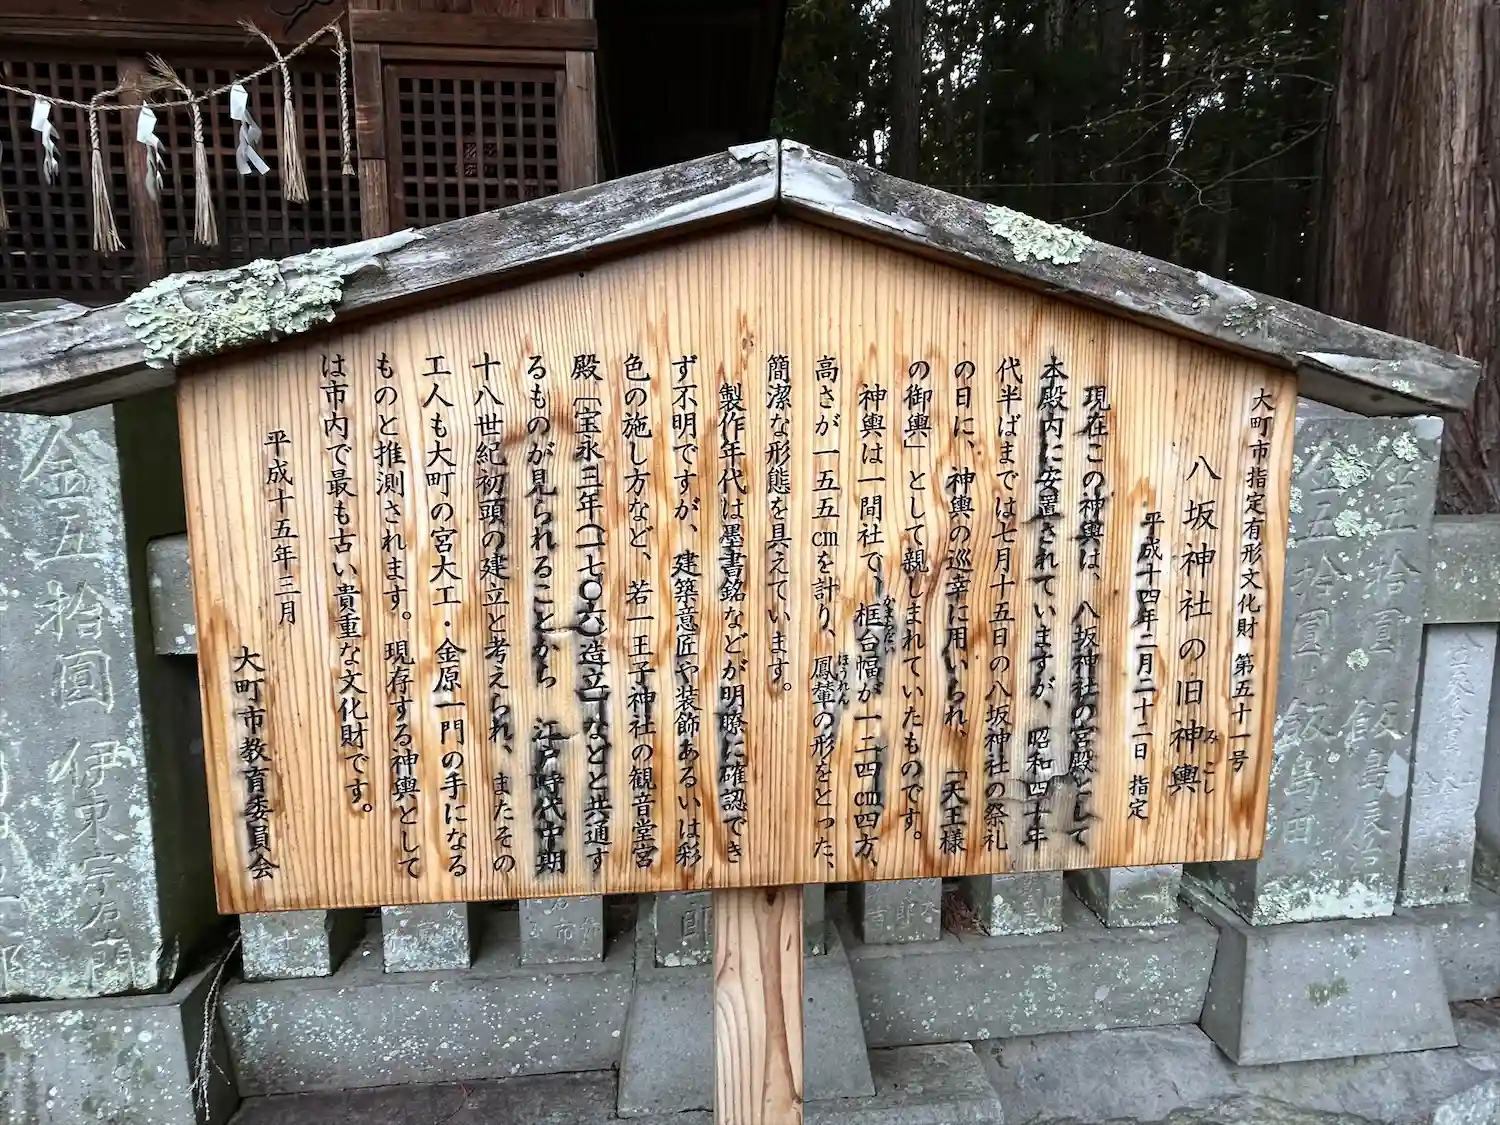 大町市指定有形文化財 第五十一号
八坂神社の旧神輿
みこし
平成十四年二月二十二日 指定
現在この神輿は、八坂神社の宮殿として
本殿内に安置されていますが、昭和四十年
代半ばまでは七月十五日の八坂神社の祭礼
の日に、神輿の巡幸に用いられ、「天王様
の御輿」として親しまれていたものです。
神輿は一間社で、框台幅が一二四cm四方、
かまちだい
高さが一五五cmを計り、鳳輦の形をとった、
ほうれん
簡潔な形態を具えています。
製作年代は墨書銘などが明瞭に確認でき
ず不明ですが、建築意匠や装飾あるいは彩
色の施し方など、若一王子神社の観音堂宮
殿〔宝永三年(一七〇六)造立〕などと共通す
るものが見られることから 江戸時代中期
十八世紀初頭の建立と考えられ、またその
工人も大町の宮大工・金原一門の手になる
ものと推測されます。現存する神輿として
は市内で最も古い貴重な文化財です。
平成十五年三月
大町市教育委員会
金五拾圓
金五拾圓 飯島